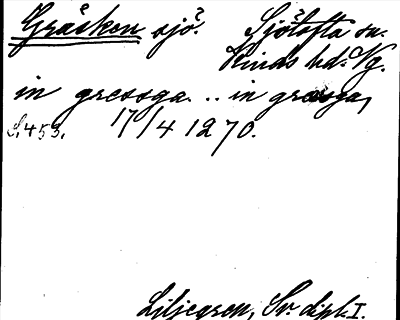 Gräsken sjö. Sjötofta sn.
Kinds hd. Vg.
in gressga .. in gressga,
S. 453. 17/4 1270.
Liljegren, Sv. dipl. I.